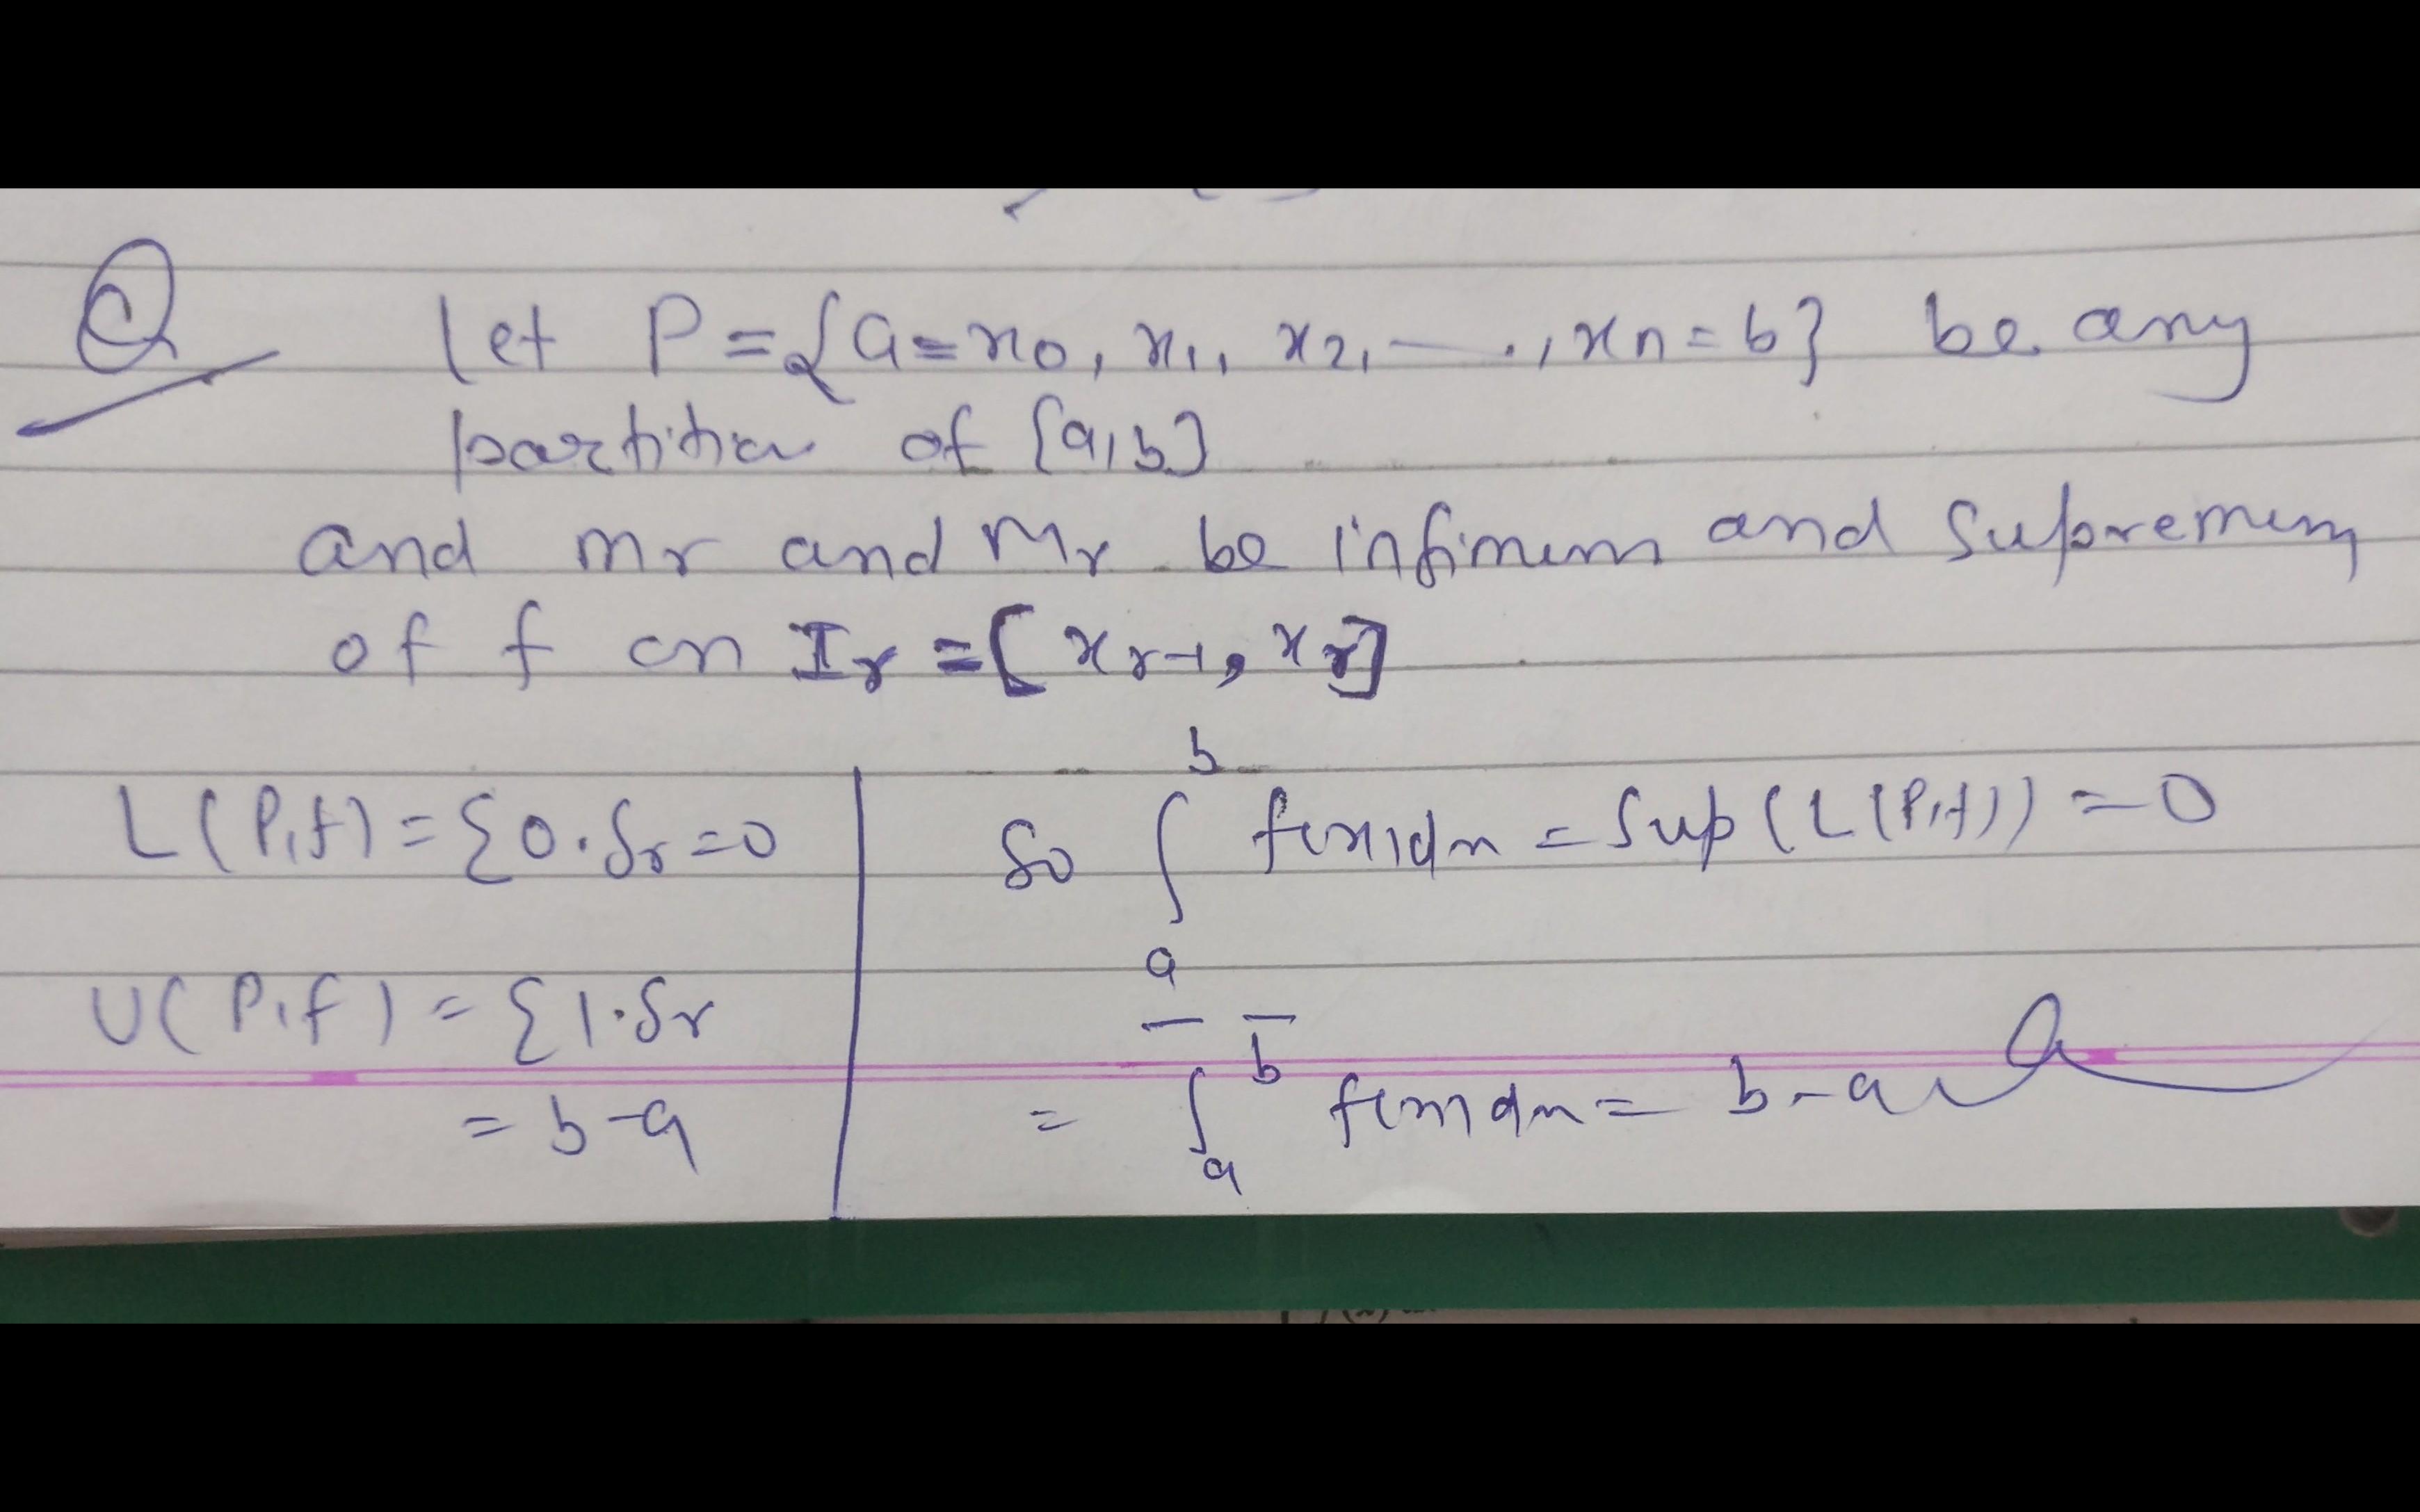 Q Let P = {a = x0, x1, x2, — ., xn = b} be any
partition of [a, b]
and mr and Mr be infimum and Supremum
of f on Ir = [xr-1, xr]
L(P, f) = Σ 0. δr = 0
U(P, f) = Σ 1. δr
= b - a
b
So ∫ f(x) dx = Sup (L(P, f)) = 0
a
—
—
b
= ∫ f(x) dx = b - a
a